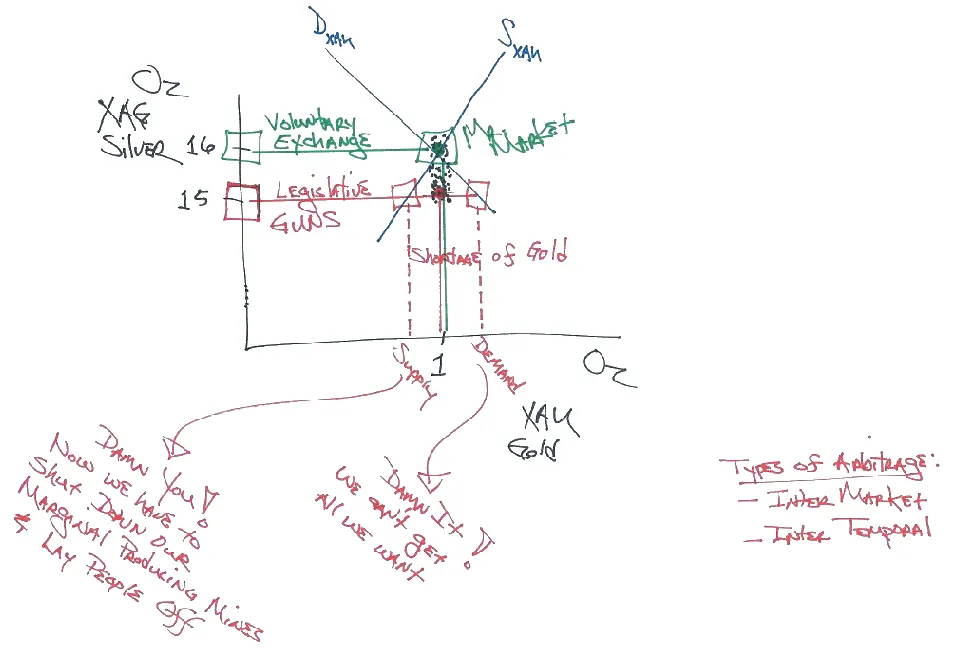 D XAU
S XAU
Oz
XAG
Silver
16
Voluntary
Exchange
Market
15
Legislative
GUNS
Shortage of Gold
Supply
1
Demand
Oz
XAU
Gold
Damn You!
Now we have to
Shut Down our
Marginal Producing Mines
& Lay People Off
Damn It!
We can't get
All we want
Types of Arbitrage:
- Inter Market
- Inter Temporal